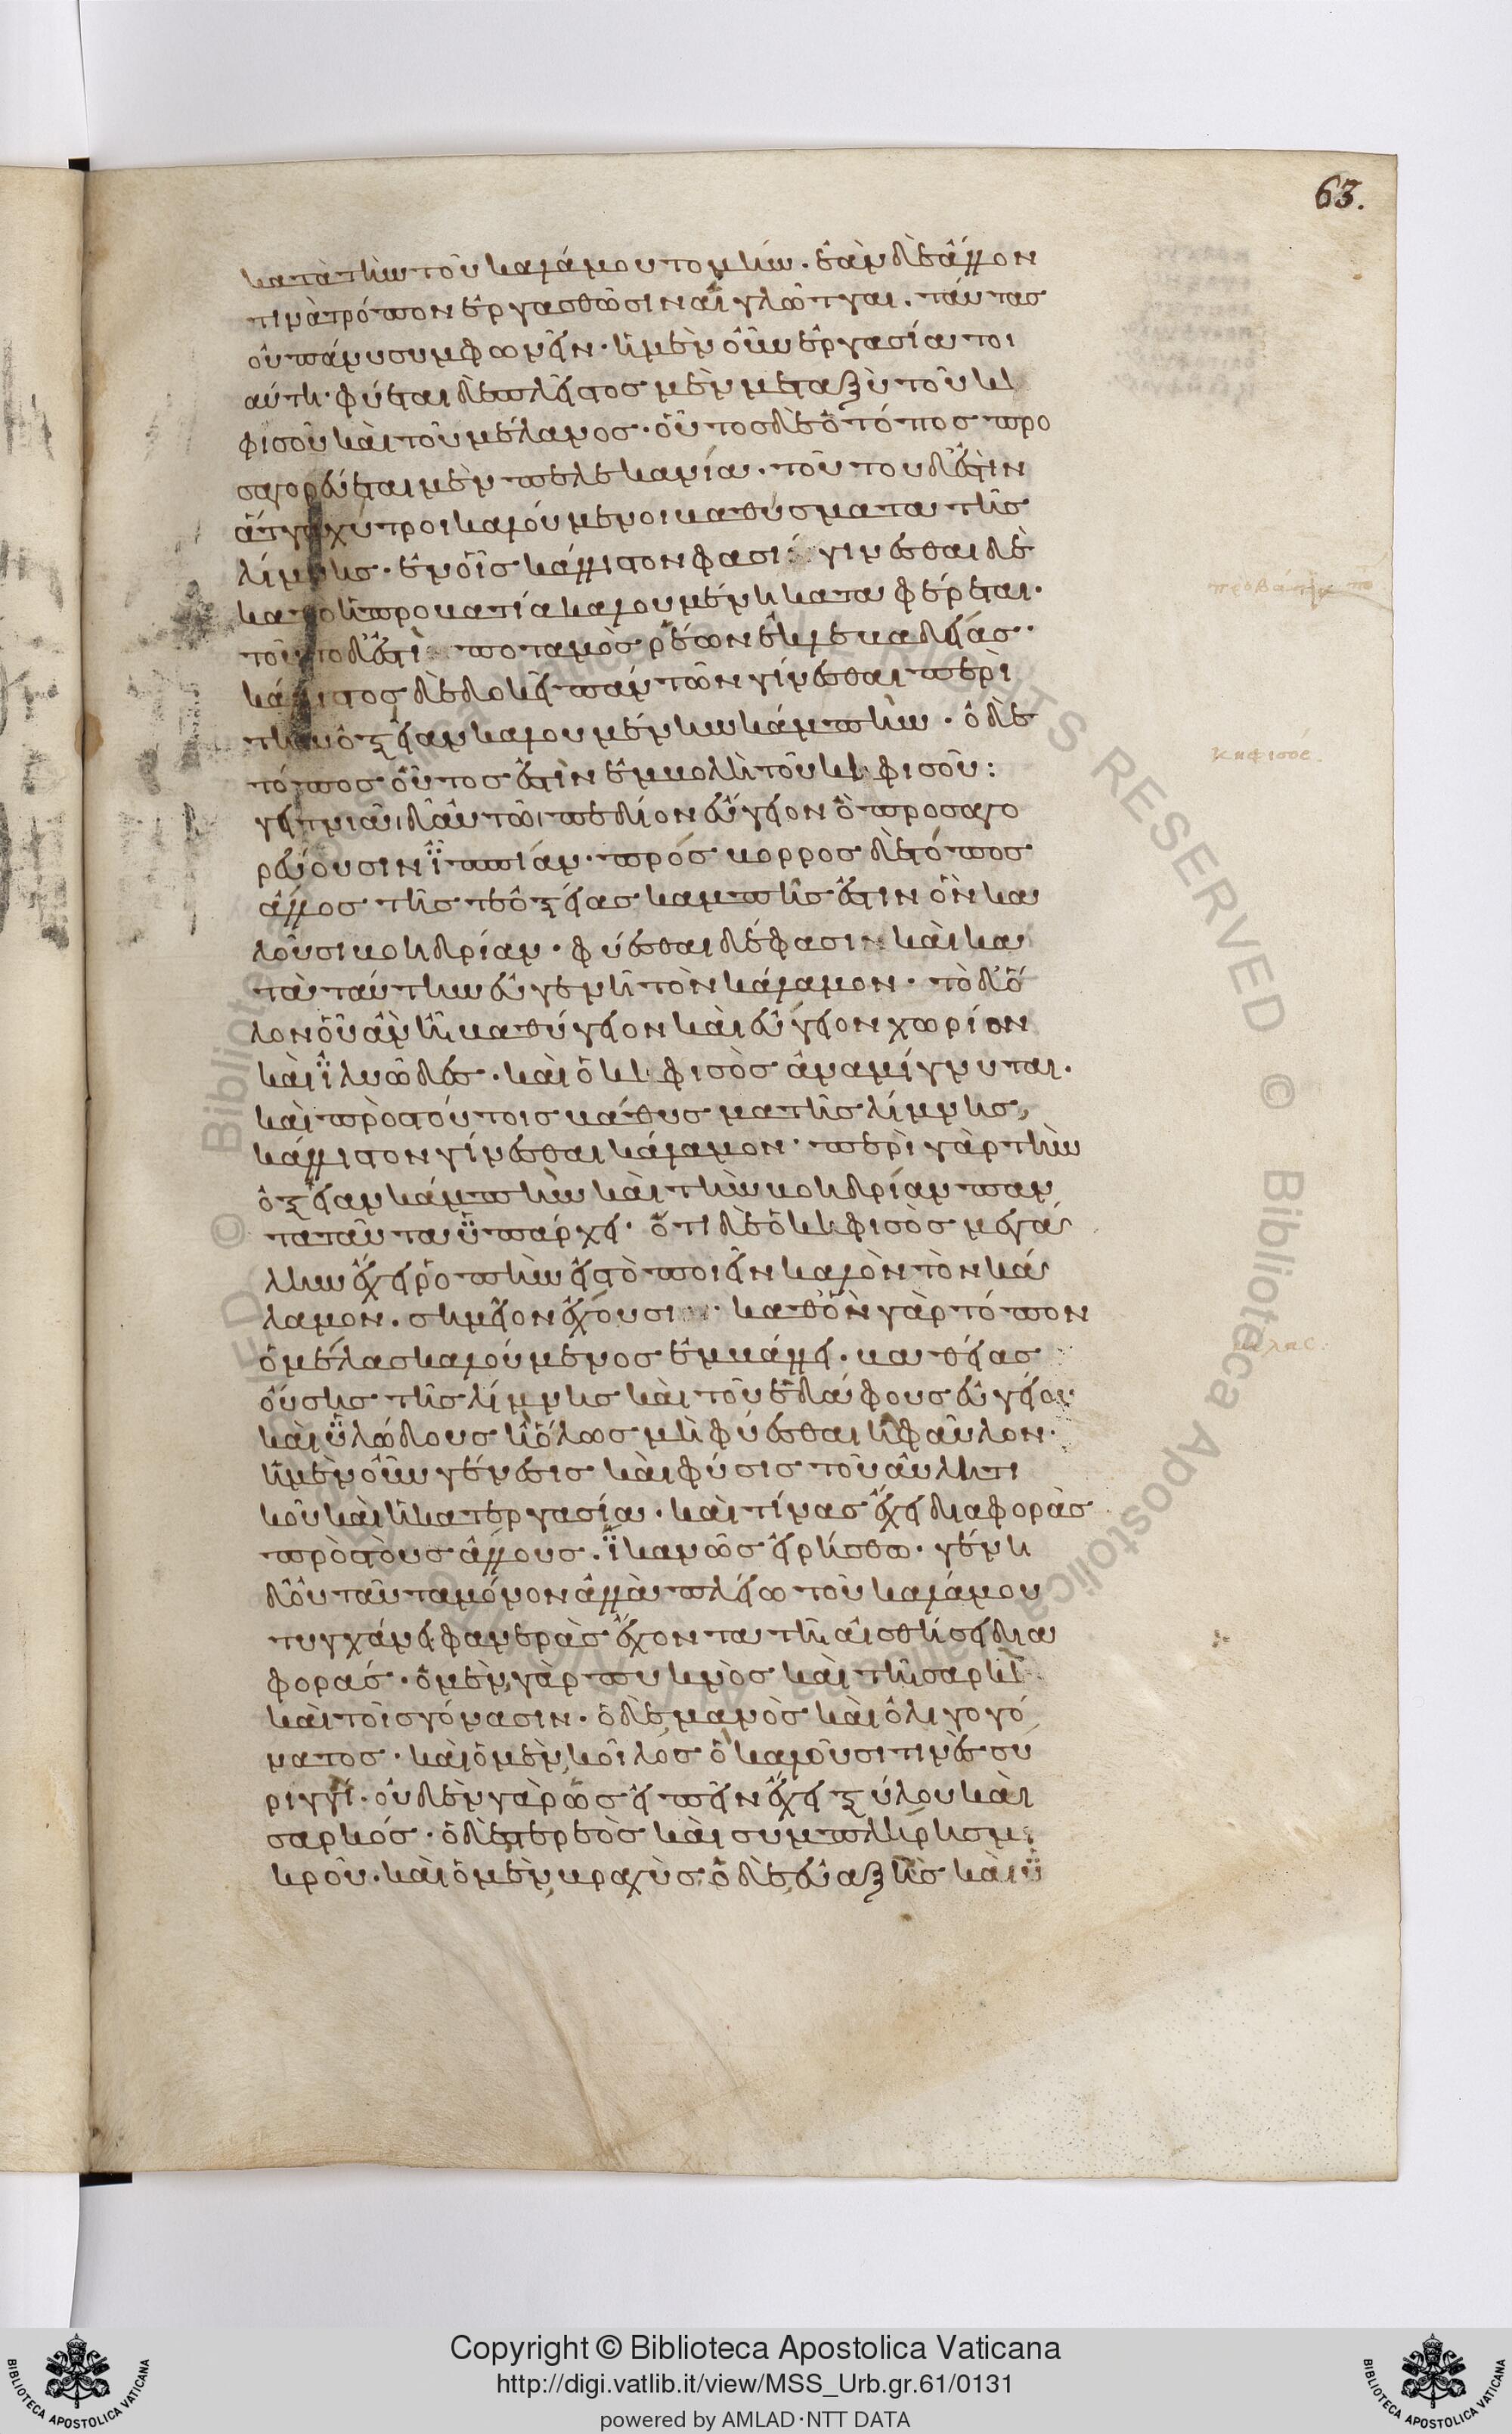 63.
κατὰ τὴν τοῦ καλάμου τομήν. ἐὰν δὲ ἄλλον
τινὰ τρόπον ἐργασθῶσιν αἱ γλῶτται. ταύτας
οὐ πάνυ συμφωνεῖν. ἡ μὲν οὖν ἐργασία τοι
αύτη. φύεται δὲ πλεῖστος μὲν μεταξὺ τοῦ κη
φισοῦ καὶ τοῦ μέλανος. οὗτος δὲ ὁ τόπος προ
σαγορεύεται μὲν πελεκανία. τούτου δ' ἐστὶν
ἄττα χύτροι καλούμενοι καθύσματα τῆς
λίμνης. ἐν οἷς κάλλιστον φασι γινέσθαι δὲ
καθ' ὃ ἡ προκατία καλουμένη καταφέρεται.
τοῦτο δ' ἐστὶ ποταμὸς ῥέων ἐκ λεκαδείας.
κάλλιστος δὲ δοκεῖ πάντων γίνεσθαι περὶ
τὴν ὀξεῖαν καλουμένην κάμπην. ὁ δὲ
τόπος οὗτός ἐστιν ἐμκολὴ τοῦ κηφισοῦ:
γειτνιᾶι δ' αὐτῶι πεδίον εὔγειον ὃ προσαγο
ρεύουσιν ἱππίαν. πρόσκορρος δὲ τόπος
ἄλλος τῆς τε ὀξείας καμπῆς ἐστιν ὃν κα
λοῦσι κοηδρίαν. φύεσθαι δέ φασιν καὶ κα
τὰ ταύτην εὐγενῆ τὸν κάλαμον. τὸ δ' ὅ
λον οὗ ἂν ἦι καθύγειον καὶ εὔγειον χωρίον
καὶ ἰλυῶδες. καὶ ὁ κηφισὸς ἀναμίγνυται.
καὶ πρὸς τούτοις κάθυσμα τῆς λίμνης,
κάλλιστον γίνεσθαι κάλαμον. περὶ γὰρ τὴν
ὀξεῖαν κάμπην καὶ τὴν κοηδρίαν παν
τα ταῦτα ὑπάρχει. ὅτι δὲ ὁ κηφισὸς μεγά
λην ἔχει ῥοπὴν εἰς τὸ ποιεῖν καλὸν τὸν κά
λαμον. σημεῖον ἔχουσι καθ' ὃν γὰρ τόπον
ὁ μέλας καλούμενος ἐμκάλλει. καθείας
οὔσης τῆς λίμνης καὶ τοῦ ἐδάφους εὐγείου
καὶ ὑλώδους ἢ ὅλως μὴ φύεσθαι ἢ φαῦλον.
ἡ μὲν οὖν γένεσις καὶ φύσις τοῦ αὐλητι
κοῦ καὶ ἡ κατεργασία. καὶ τίνας ἔχει διαφορὰς
πρὸς τοὺς ἄλλους. ἱκανῶς εἰρήσθω. γένη
δ' οὐ ταῦτα μόνον ἀλλὰ πλείω τοῦ καλάμου
τυγχάνει φανερὰς ἔχοντα τῆ αἰσθήσει δια
φοράς. ὁ μὲν γὰρ πυκνὸς καὶ τῆ σαρκὶ
καὶ τοῖς γόνασιν. ὁ δὲ μανὸς καὶ ὀλιγογό
νατος. καὶ ὁ μὲν κοῖλος ὃ καλοῦσι τινὲς συ
ριγγί. οὐδὲν γὰρ ὡς εἰπεῖν ἔχει ξύλου καὶ
σαρκός. ὁ δὲ στερεὸς καὶ συμπλήρης μι
κροῦ. καὶ ὁ μὲν κραχὺς. ὁ δὲ εὐαξὴς καὶ ὑ
κηφισός.
Copyright © Biblioteca Apostolica Vaticana
http://digi.vatlib.it/view/MSS_Urb.gr.61/0131
powered by AMLAD·NTT DATA
BIBLIOTECA APOSTOLICA VATICANA
BIBLIOTECA APOSTOLICA VATICANA